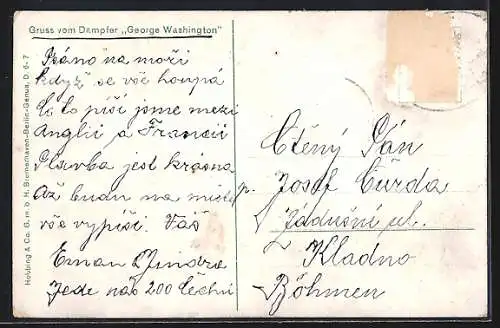 Gruss vom Dampfer „George Washington"
Ráno na moři
když se vše houpá
to píši jsme mezi
Anglii a Francii
Plavba jest krasna
Až budu na místě
vše vypíši. Váš
Eman Jindra
Jede nás 200 čechů
Ctěný Pán
p. Josef Čurda
Zádušní ul.
Kladno
Böhmen
Hobbing & Co. G. m. b. H. Bremerhaven-Berlin-Genua, D. 6- 7